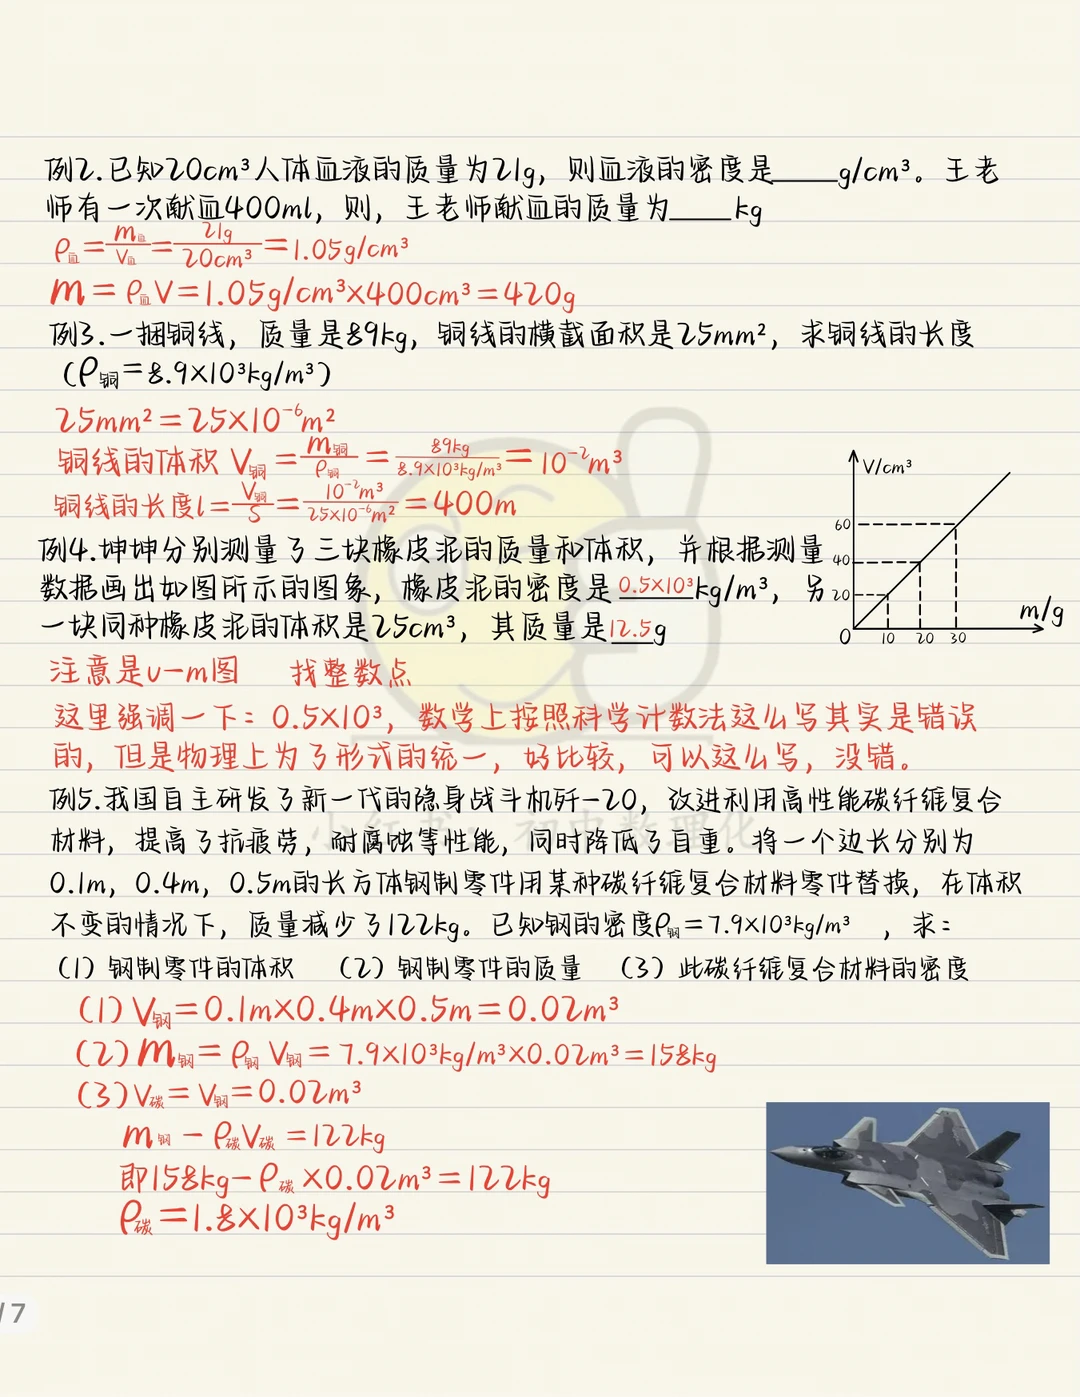 例2.已知20cm³人体血液的质量为21g，则血液的密度是____g/cm³。王老
师有一次献血400ml，则，王老师献血的质量为____kg
ρ血=m血/V血=21g/20cm³=1.05g/cm³
m=ρ血V=1.05g/cm³×400cm³=420g
例3.一捆铜线，质量是89kg，铜线的横截面积是25mm²，求铜线的长度
（ρ铜=8.9×10³kg/m³）
25mm²=25×10⁻⁶m²
铜线的体积 V铜=m铜/ρ铜=89kg/8.9×10³kg/m³=10⁻²m³
铜线的长度l=V铜/S=10⁻²m³/25×10⁻⁶m²=400m
例4.坤坤分别测量了三块橡皮泥的质量和体积，并根据测量
数据画出如图所示的图象，橡皮泥的密度是 0.5×10³kg/m³，另
一块同种橡皮泥的体积是25cm³，其质量是12.5g
V/cm³
60
40
20
0 10 20 30
m/g
注意是v-m图 找整数点
这里强调一下：0.5×10³，数学上按照科学计数法这么写其实是错误
的，但是物理上为了形式的统一，好比较，可以这么写，没错。
例5.我国自主研发了新一代的隐身战斗机歼-20，改进利用高性能碳纤维复合
材料，提高了抗疲劳，耐腐蚀等性能，同时降低了自重。将一个边长分别为
0.1m，0.4m，0.5m的长方体钢制零件用某种碳纤维复合材料零件替换，在体积
不变的情况下，质量减少了122kg。已知钢的密度ρ钢=7.9×10³kg/m³ ，求：
（1）钢制零件的体积 （2）钢制零件的质量 （3）此碳纤维复合材料的密度
（1）V钢=0.1m×0.4m×0.5m=0.02m³
（2）m钢=ρ钢 V钢=7.9×10³kg/m³×0.02m³=158kg
（3）V碳=V钢=0.02m³
m钢-ρ碳V碳=122kg
即158kg-ρ碳×0.02m³=122kg
ρ碳=1.8×10³kg/m³
小红书：初中数理化
/7